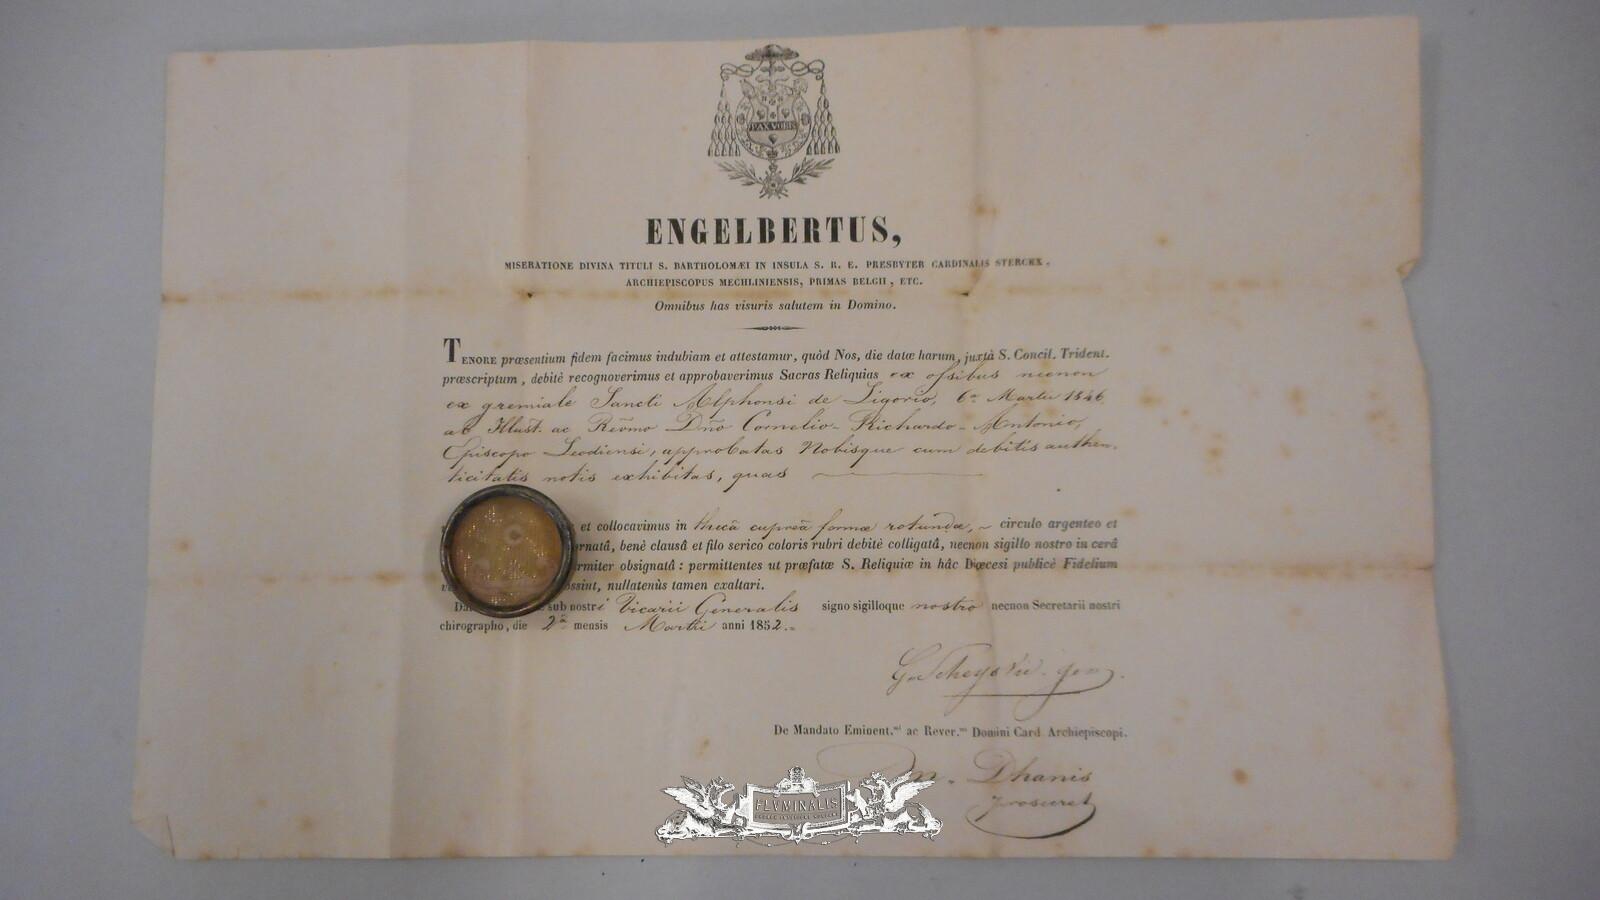 PAX VOBIS
ENGELBERTUS,
MISERATIONE DIVINA TITULI S. BARTHOLOMÆI IN INSULA S. R. E. PRESBYTER CARDINALIS STERCKX,
ARCHIEPISCOPUS MECHLINIENSIS, PRIMAS BELGII, ETC.
Omnibus has visuris salutem in Domino.
TENORE præsentium fidem facimus indubiam et attestamur, quòd Nos, die datæ harum, juxtà S. Concil. Trident.
præscriptum, debitè recognoverimus et approbaverimus Sacras Reliquias ex ossibus necnon
ex gremiale Sancti Alphonsi de Ligorio, 6a Martii 1846
ab Illust. ac Revmo Dño Cornelio-Richardo-Antonio,
Episcopo Leodiensi, approbatas Nobisque cum debitis authen-
ticitatis notis exhibitas, quas
et collocavimus in thecâ cupreâ formæ rotundæ, circulo argenteo et
ornatâ, benè clausâ et filo serico coloris rubri debitè colligatâ, necnon sigillo nostro in cerâ
rmiter obsignatâ : permittentes ut præfatæ S. Reliquiæ in hâc Diœcesi publicè Fidelium
ossint, nullatenùs tamen exaltari.
sub nostri Vicarii Generalis signo sigilloque nostro necnon Secretarii nostri
chirographo, die 2a mensis Martii anni 1852.
De Mandato Eminent.mi ac Rever.mi Domini Card Archiepiscopi.
Dhanis
prosecret
FLVMINALIS